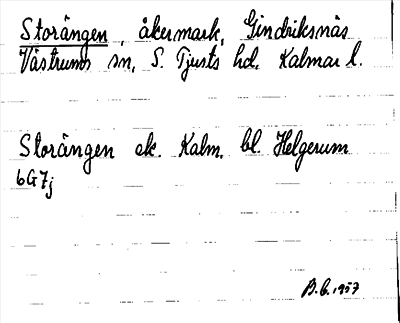 Storängen, åkermark, Gindriksnäs
Västrums sn, S. Tjusts hd. Kalmar l.
Storängen ek. Kalm. bl. Helgerum
6G7j
B.G. 1957